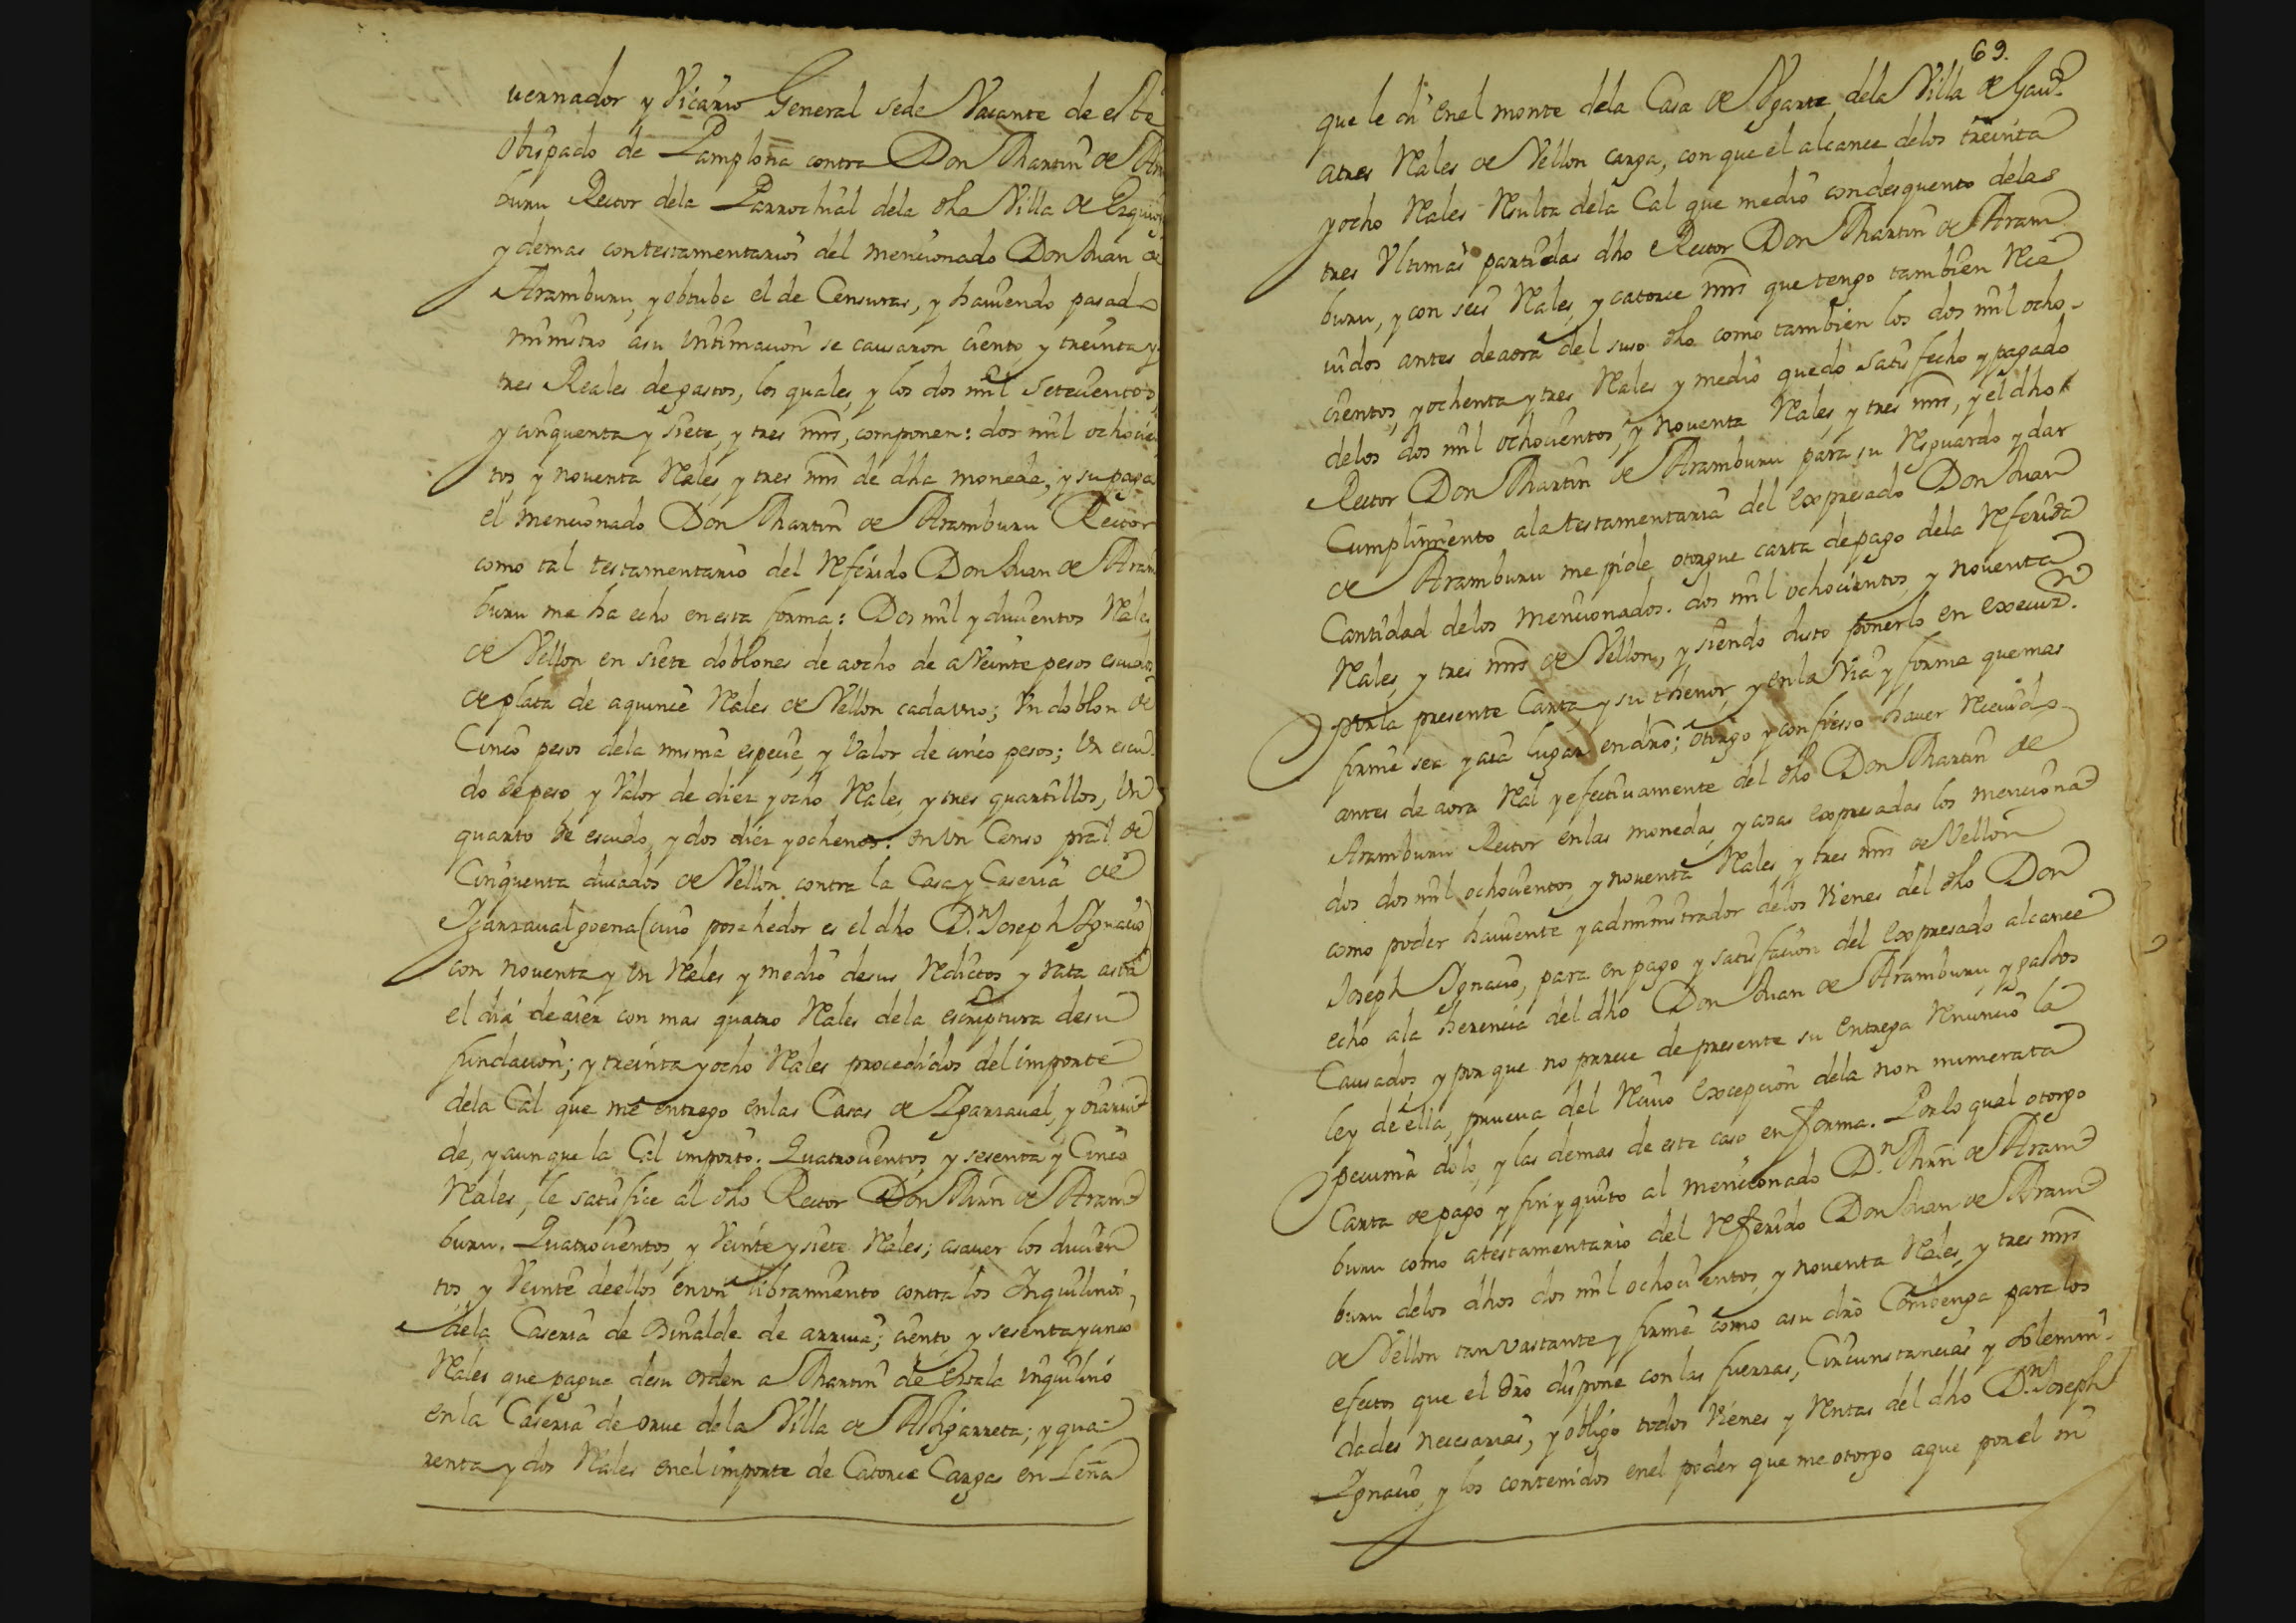 vernador y Vicario General sede Vacante de este
Obispado de Pamplona contra Don Martin de Aram
buru Rector dela Parrochial dela dha Villa de Ezquioga
y demas contestamentarios del mencionado Don Juan de
Aramburu, y obtube el de Censuras, y haviendo pasado
ministro asu intimacion se causaron ciento y treinta y
tres Reales de gastos, los quales, y los dos mil setecientos,
y cinquenta y siete, y tres mrs, componen: dos mil ochocien
tos y noventa Rales, y tres mrs de dha moneda, y su paga
el mencionado Don Martin de Aramburu Rector
como tal testamentario del Referido Don Juan de Aram
buru me ha echo en esta forma: Dos mil y ducientos Rales
de Vellon en siete doblones de aocho de aVeinte pesos escudos
de plata de aquince Rales de Vellon cada uno; Un doblon de
Cinco pesos dela misma especie, y Valor de cinco pesos; Un escu-
do de peso y Valor de diez y ocho Rales, y tres quartillos, Un
quarto de escudo, y dos diez yochenos. en Un Censo pral de
Cinquenta ducados de Vellon contra la Casa y Caseria de
Igarzaval goena (cuio posehedor es el dho Dn. Joseph Ignacio)
con noventa y Un Rales y medio desus Reditos y rata asta
el dia de aier con mas quatro Rales dela escriptura desu
fundacion; y treinta yocho Rales procedidos del importe
dela Cal que me entrego enlas Casas de Igarzaval, y
de, y aunque la Cal importo. Quatrocientos, y sesenta y Cinco
Rales, le satisfice al dho Rector Don Mrn de Aram
buru. Quatrocientos, y Veinte y siete Rales; asaver los ducien
tos, y Veinte deellos en un libramiento contra los Inquilinos,
dela Caseria de de arriva; ciento, y sesenta y cinco
Rales que pague desu orden a Martin de inquilino
en la Caseria de dela Villa de Alzigarreta; y qua-
renta y dos Rales en el importe de Catorce Cargas en Leña
69.
que le di en el monte dela Casa de Ugarte dela Villa de Gavi.a
atres Rales de Vellon carga, con que el alcance delos treinta
yocho Rales Resulta dela Cal que medio condesquento delas
tres Ultimas partidas dho Rector Don Martin de Aram
buru, y con seis Rales, y catorce mrs que tengo tambien Reci
vidos antes de aora del suso dho como tambien los dos mil ocho-
cientos, y ochenta y tres Rales y medio quedo satisfecho y pagado
delos dos mil ochocientos, y noventa Rales, y tres mrs, y el dho
Rector Don Martin de Aramburu para su Resguardo y dar
Cumplimiento ala testamentaria del expresado Don Juan
de Aramburu me pide otorgue carta de pago dela Referida
Cantidad delos mencionados. dos mil ochocientos, y noventa
Rales, y tres mrs de Vellon, y siendo Justo ponerlo en execuzn.
por la presente Carta, y su thenor, y en la Via y forma que mas
firme sea y aia lugar en dro; otorgo y confiesso haver Recivido
antes de aora Ral y efectivamente del dho Don Martin de
Aramburu Rector enlas monedas, y cosas expresadas los menciona
dos dos mil ochocientos, y noventa Rales, y tres mrs de Vellon
como poder haviente y administrador delos Vienes del dho Don
Joseph Ignacio, para en pago y satisfacion del expresado alcance
echo ala herencia del dho Don Juan de Aramburu, y gastos
Causados, y por que no parece de presente su entrega Renuncio la
ley de ella, prueva del Recivo excepcion dela non numerata
pecunia dolo, y las demas de este caso en forma. Por lo qual otorgo
Carta de pago y fin y quito al mencionado Dn. Mrn de Aram
buru como atestamentario del Referido Don Juan de Aram
buru delos dhos dos mil ochocientos, y noventa Rales, y tres mrs
de Vellon tan vastante y firme como asu dro Combenga para los
efectos que el dro dispone con las fuerzas, Circunstancias y solemni-
dades necesarias, y obligo todos Vienes y Rentas del dho Dn. Joseph
Ignacio, y los contenidos en el poder que me otorgo aque por el ni